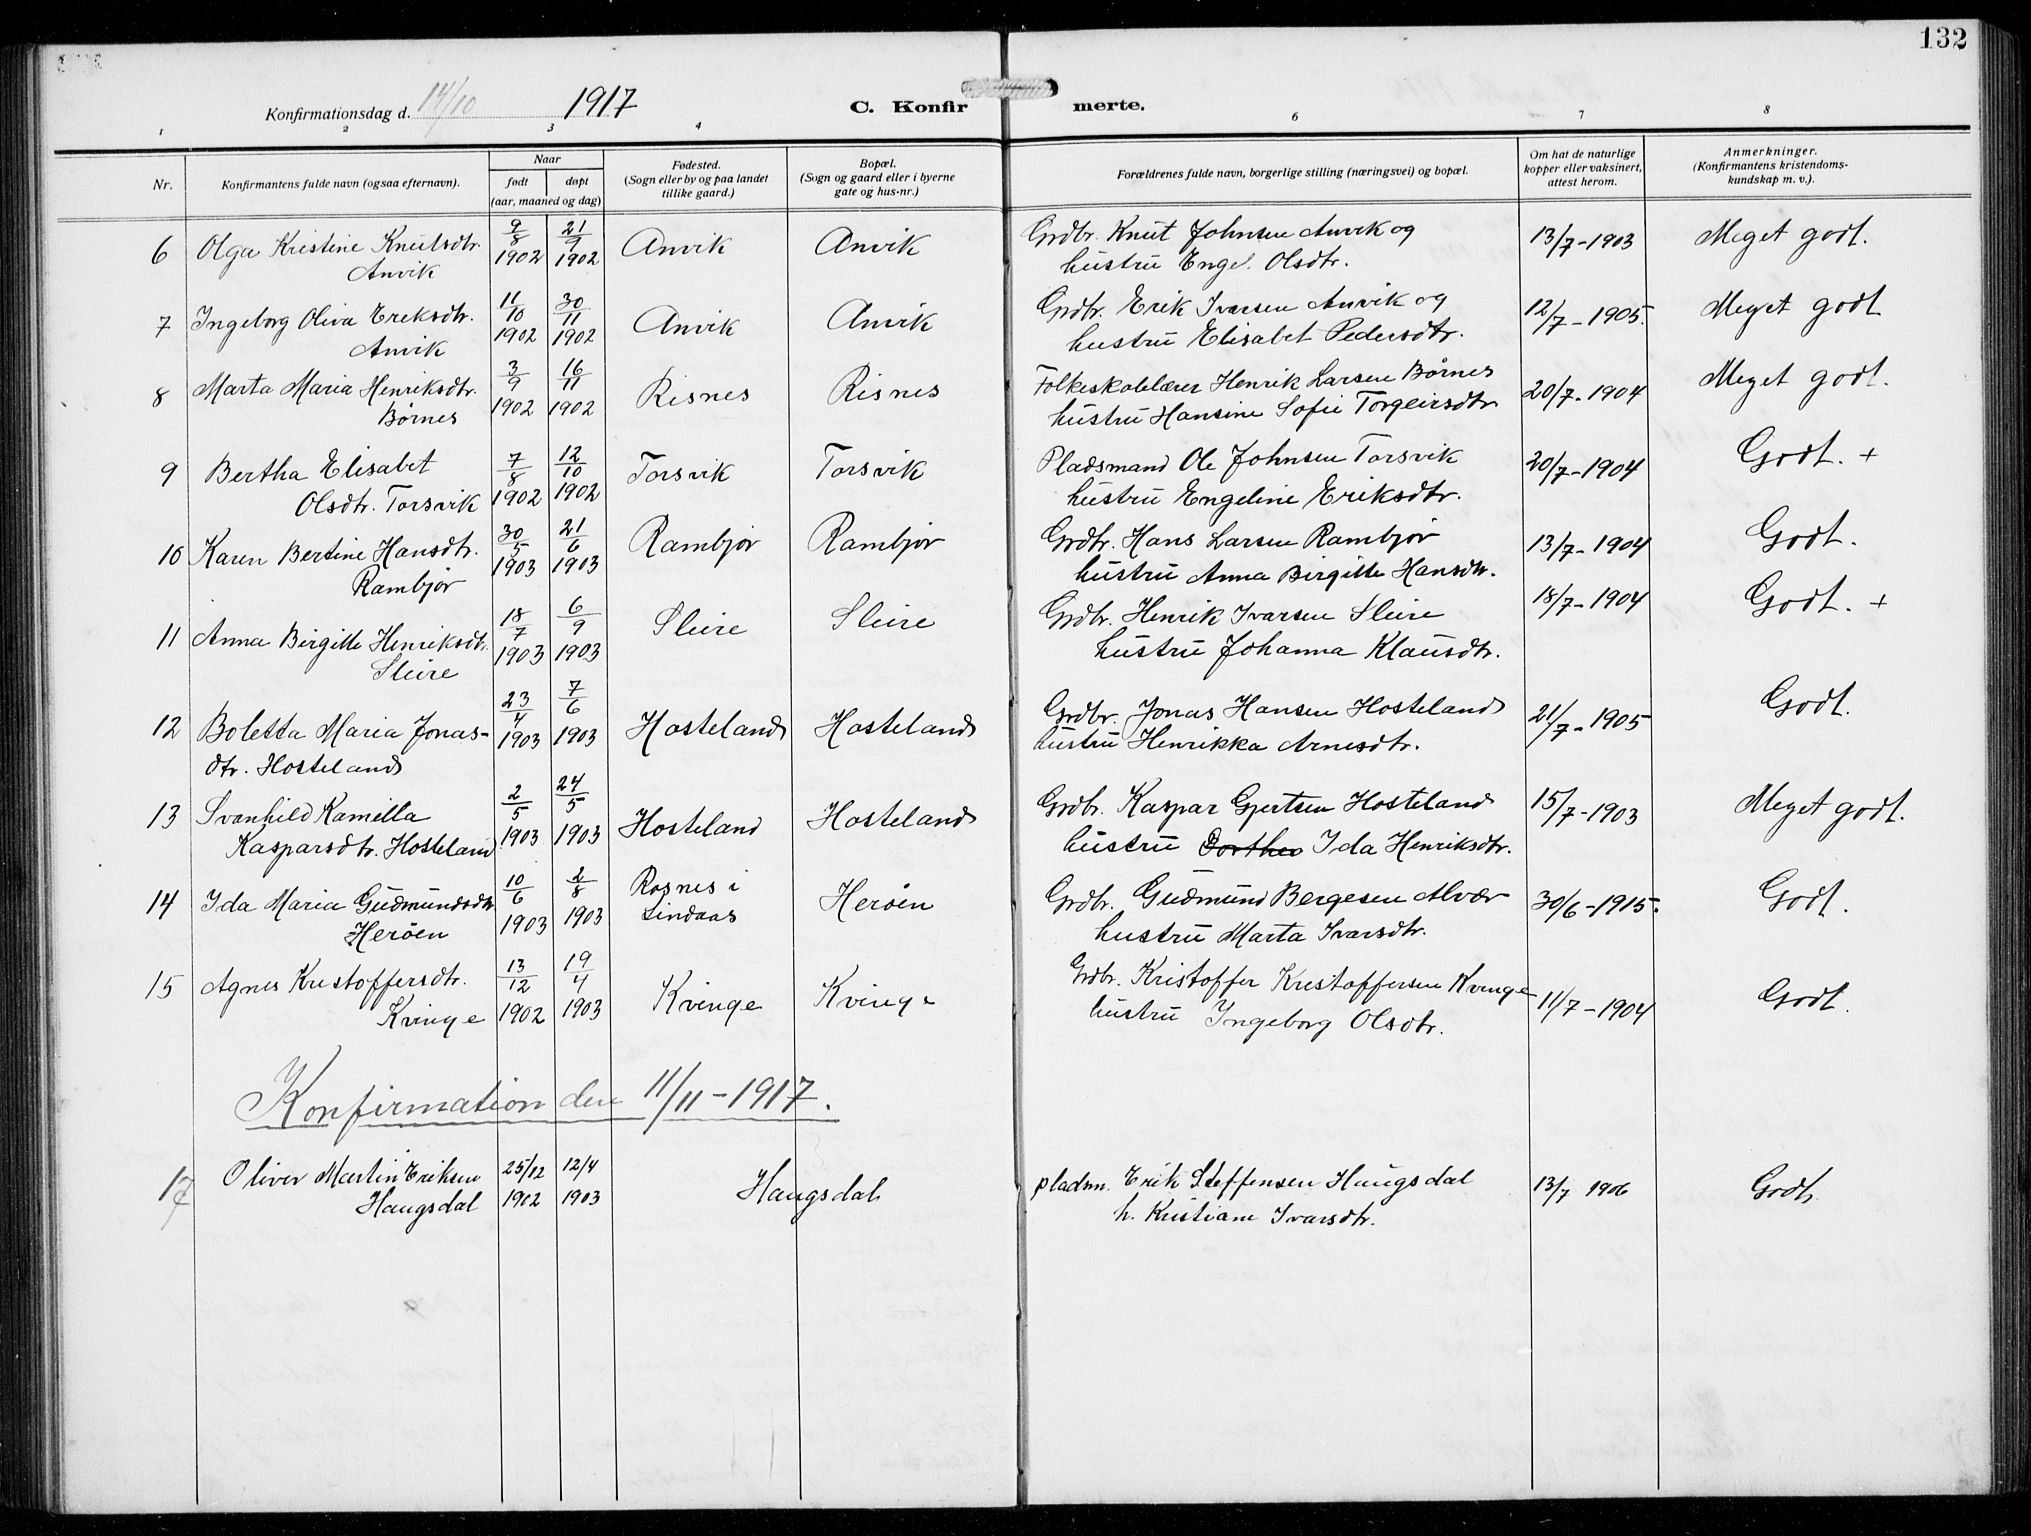 132
Konfirmationsdag d. 14/10 1917
C. Konfirmerte.
1 2 3 4 6 7 8
Nr.
Konfirmantens fulde navn (ogsaa efternavn).
Naar
født døpt
(aar, maaned og dag)
Fødested.
(Sogn eller by og paa landet
tillike gaard.)
Bopæl.
(Sogn og gaard eller i byerne
gate og hus-nr.)
Forældrenes fulde navn, borgerlige stilling (næringsvei) og bopæl.
Om hat de naturlige
kopper eller vaksinert,
attest herom.
Anmerkninger.
(Konfirmantens kristendoms-
kundskap m. v.).
6 Olga Kristine Knutsdtr. 9/8 21/9 Anvik Anvik Grdbr. Knut Johnsen Anvik og 13/7-1903 Meget godt.
Anvik 1902 1902 hustru Engel Olsdtr.
7 Ingeborg Oliva Ereksdtr. 11/10 30/11 Anvik Anvik Grdbr. Erik Ivarsen Anvik og 12/7-1905. Meget godt
Anvik 1902 1902 hustru Elisabet Pedersdtr.
8 Marta Maria Henriksdtr. 3/9 16/11 Risnes Risnes Folkeskolelærer Henrik Larsen Børnes 20/7-1904 Meget godt.
Børnes 1902 1902 hustru Hansine Sofie Torgeirsdtr
9 Bertha Elisabet 7/8 12/10 Torsvik Torsvik Pladsmand Ole Johnsen Torsvik 20/7-1904 Godt. +
Olsdtr. Torsvik 1902 1902 hustru Engeline Eriksdtr.
10 Karen Bertine Hansdtr. 30/5 21/6 Rambjør Rambjør Grdbr. Hans Larsen Rambjør 13/7-1904 Godt.
Rambjør 1903 1903 hustru Anna Birgitte Hansdtr.
11 Anna Birgitte Henriksdtr. 18/7 6/9 Sleire Sleire Grdbr. Henrik Ivarsen Sleire 18/7-1904 Godt. +
Sleire 1903 1903 hustru Johanna Klausdtr.
12 Boletta Maria Jonas- 23/4 7/6 Hosteland Hosteland Grdbr. Jonas Hansen Hosteland 21/7-1905 Godt.
dtr. Hosteland 1903 1903 hustru Henrikka Arnesdtr.
13 Svanhild Kamilla 2/5 24/5 Hosteland Hosteland Grdbr. Kaspar Gjertsen Hosteland 15/7-1903 Meget godt.
Kaspersdtr. Hosteland 1903 1903 hustru Dorthea Ida Henriksdtr.
14 Ida Maria Gudmundsdtr 10/6 2/8 Rosnes i Herøen Grdbr. Gudmund Bergesen Alvær 30/6-1915. Godt.
Herøen 1903 1903 Lindaas hustru Marta Ivarsdtr.
15 Agnes Kristoffersdtr. 13/12 19/4 Kvinge Kvinge Grdbr. Kristoffer Kristoffersen Kvinge 11/7-1904 Godt.
Kvinge 1902 1903 hustru Ingeborg Olsdtr.
Konfirmation den 11/11-1917.
17 Oliver Martin Eriksen 25/12 12/4 Haugsdal pladsm. Erik Steffensen Haugsdal 13/7 1906 Godt.
Haugsdal 1902 1903 h. Kristiane Ivarsdtr.